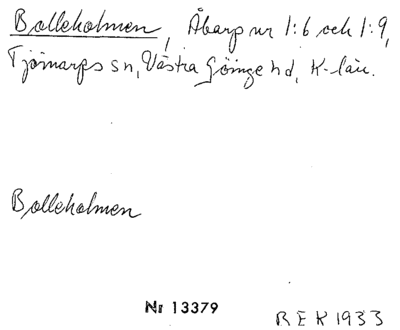 Bolleholmen, Åbarp nr 1:6 och 1:9,
Tjörnarps sn, Västra Göinge hd, K-län.
Bolleholmen
Nr 13379
REK 1933